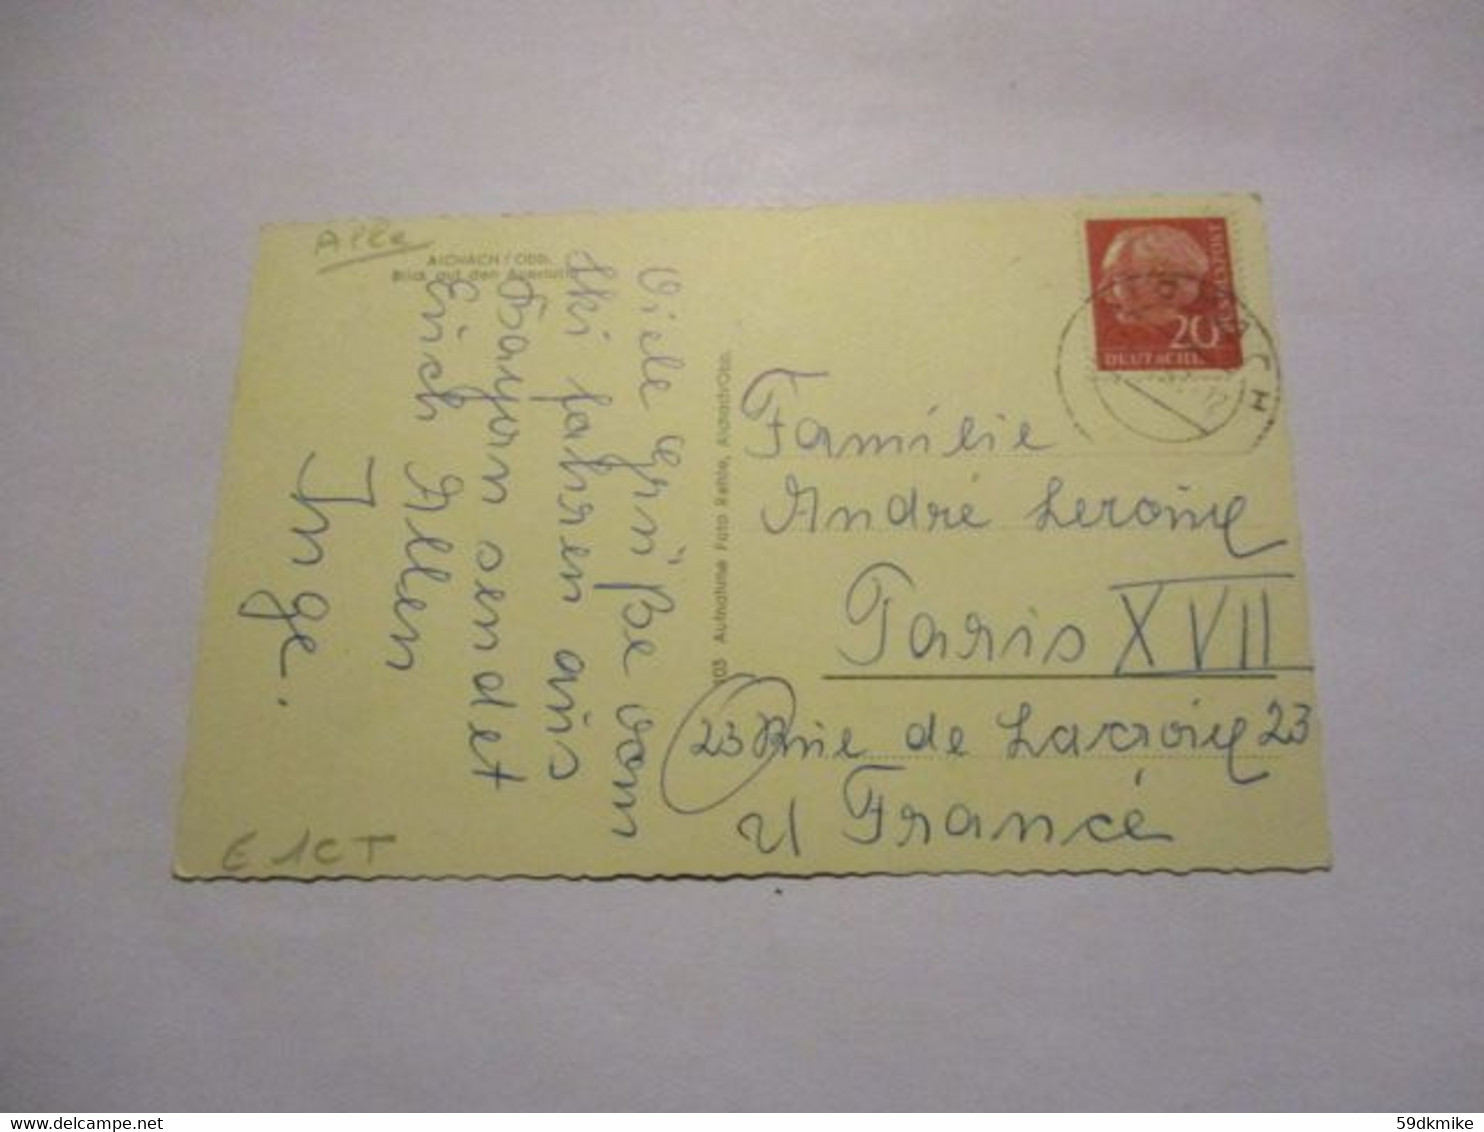 Alle
AICHACH / OBB.
Blick auf den
Viele Grüße vom
Ski fahren aus
Bayern sendet
Euch Allen
Inge.
Aufnahme Foto Rehle, Aichach/Obb.
20
DEUTSCHE
BUNDESPOST
Familie
André Leroixe
Paris XVII
23 Rue de Lacroixe 23
France
E 1CT
delcampe.net
59dkmike